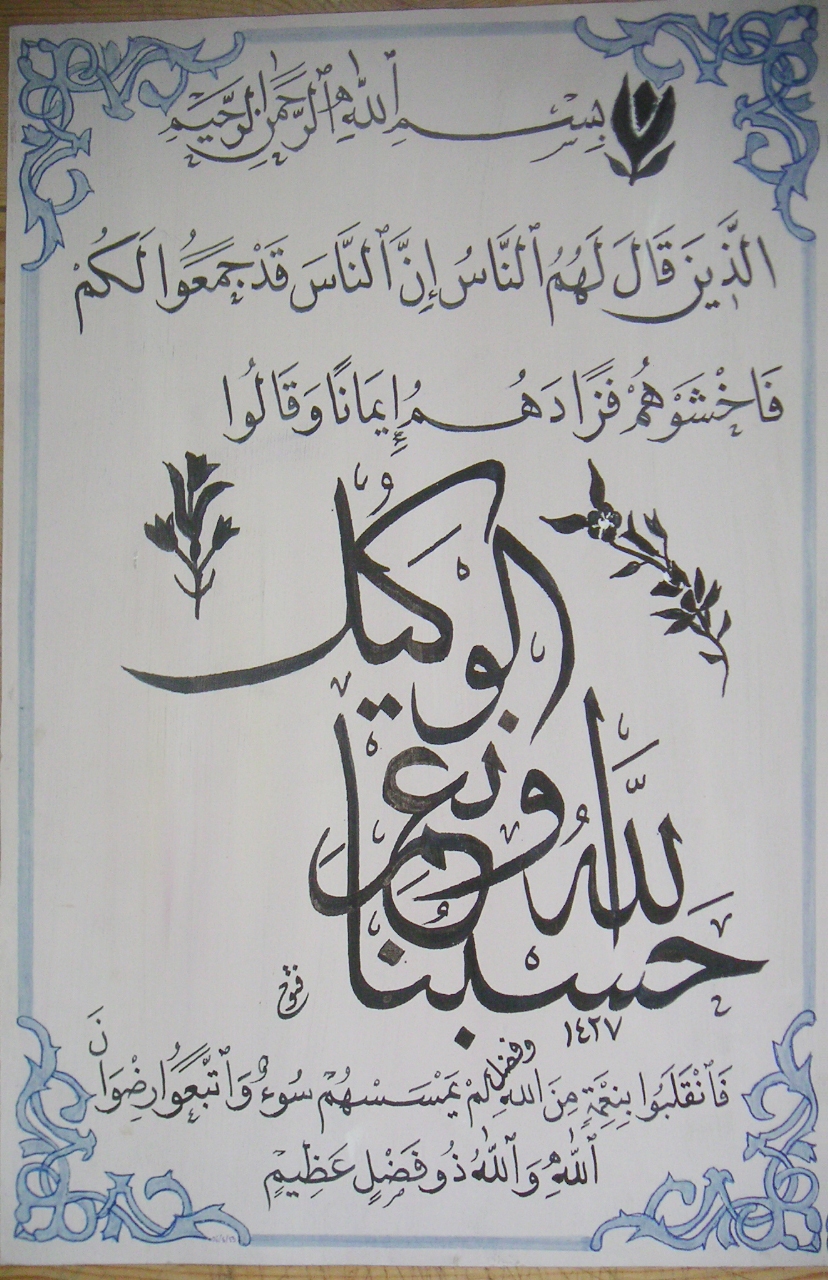 بِسْمِ ٱللَّهِ ٱلرَّحْمَٰنِ ٱلرَّحِيْمِ
الَّذِينَ قَالَ لَهُمُ ٱلنَّاسُ إِنَّ ٱلنَّاسَ قَدْ جَمَعُوا لَكُمْ
فَاخْشَوْهُمْ فَزَادَهُمُ إِيمَانًا وَقَالُوا
حَسْبُنَا اللَّهُ وَنِعْمَ الْوَكِيلُ
١٤٢٧
فَٱنْقَلَبُوا بِنِعْمَةٍ مِنَ اللَّهِ وفضل لَمْ يَمْسَسْهُمْ سُوءٌ وَٱتَّبَعُوا رِضْوَانَ
ٱللَّهِ وَٱللَّهُ ذُو فَضْلٍ عَظِيمٍ